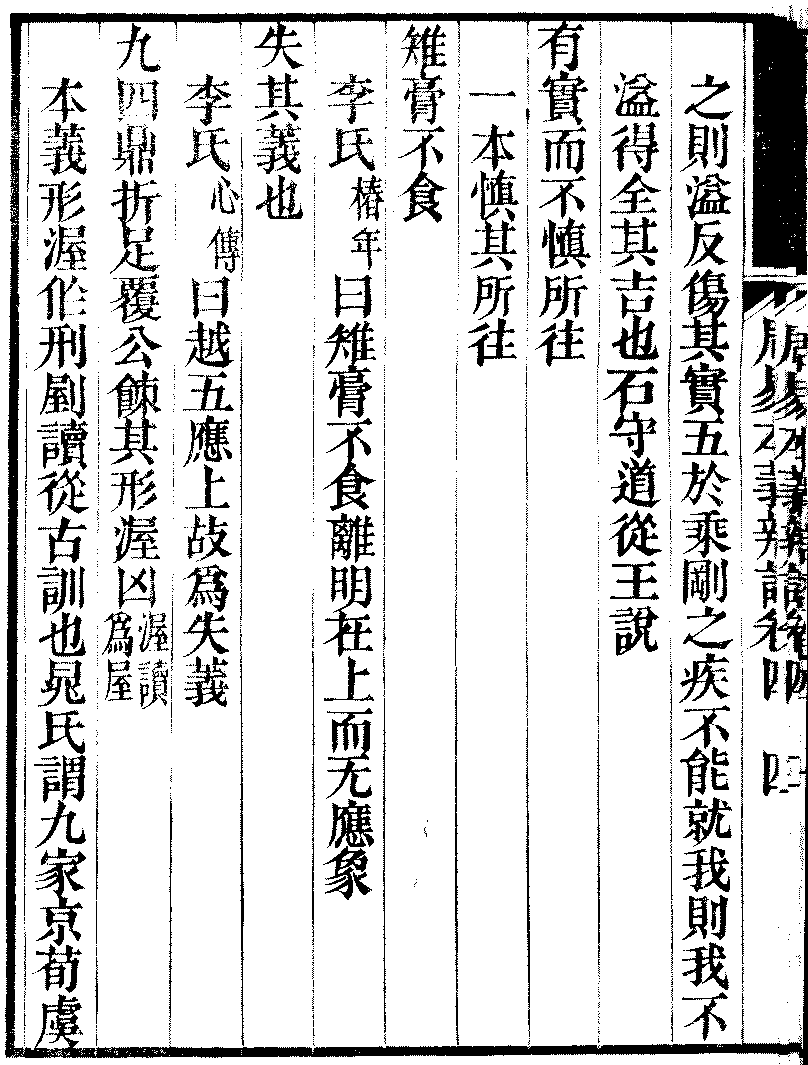 之則溢反傷其實五於乘剛之疾不能就我則我不
溢得全其吉也石守道從王說
有實而不慎所往
一本慎其所往
雉膏不食
李氏椿年曰雉膏不食離明在上而无應象
失其義也
李氏心傳曰越五應上故爲失義
九四鼎折足覆公餗其形渥凶渥讀爲屋
本義形渥作刑剭讀從古訓也晁氏謂九家京荀虞